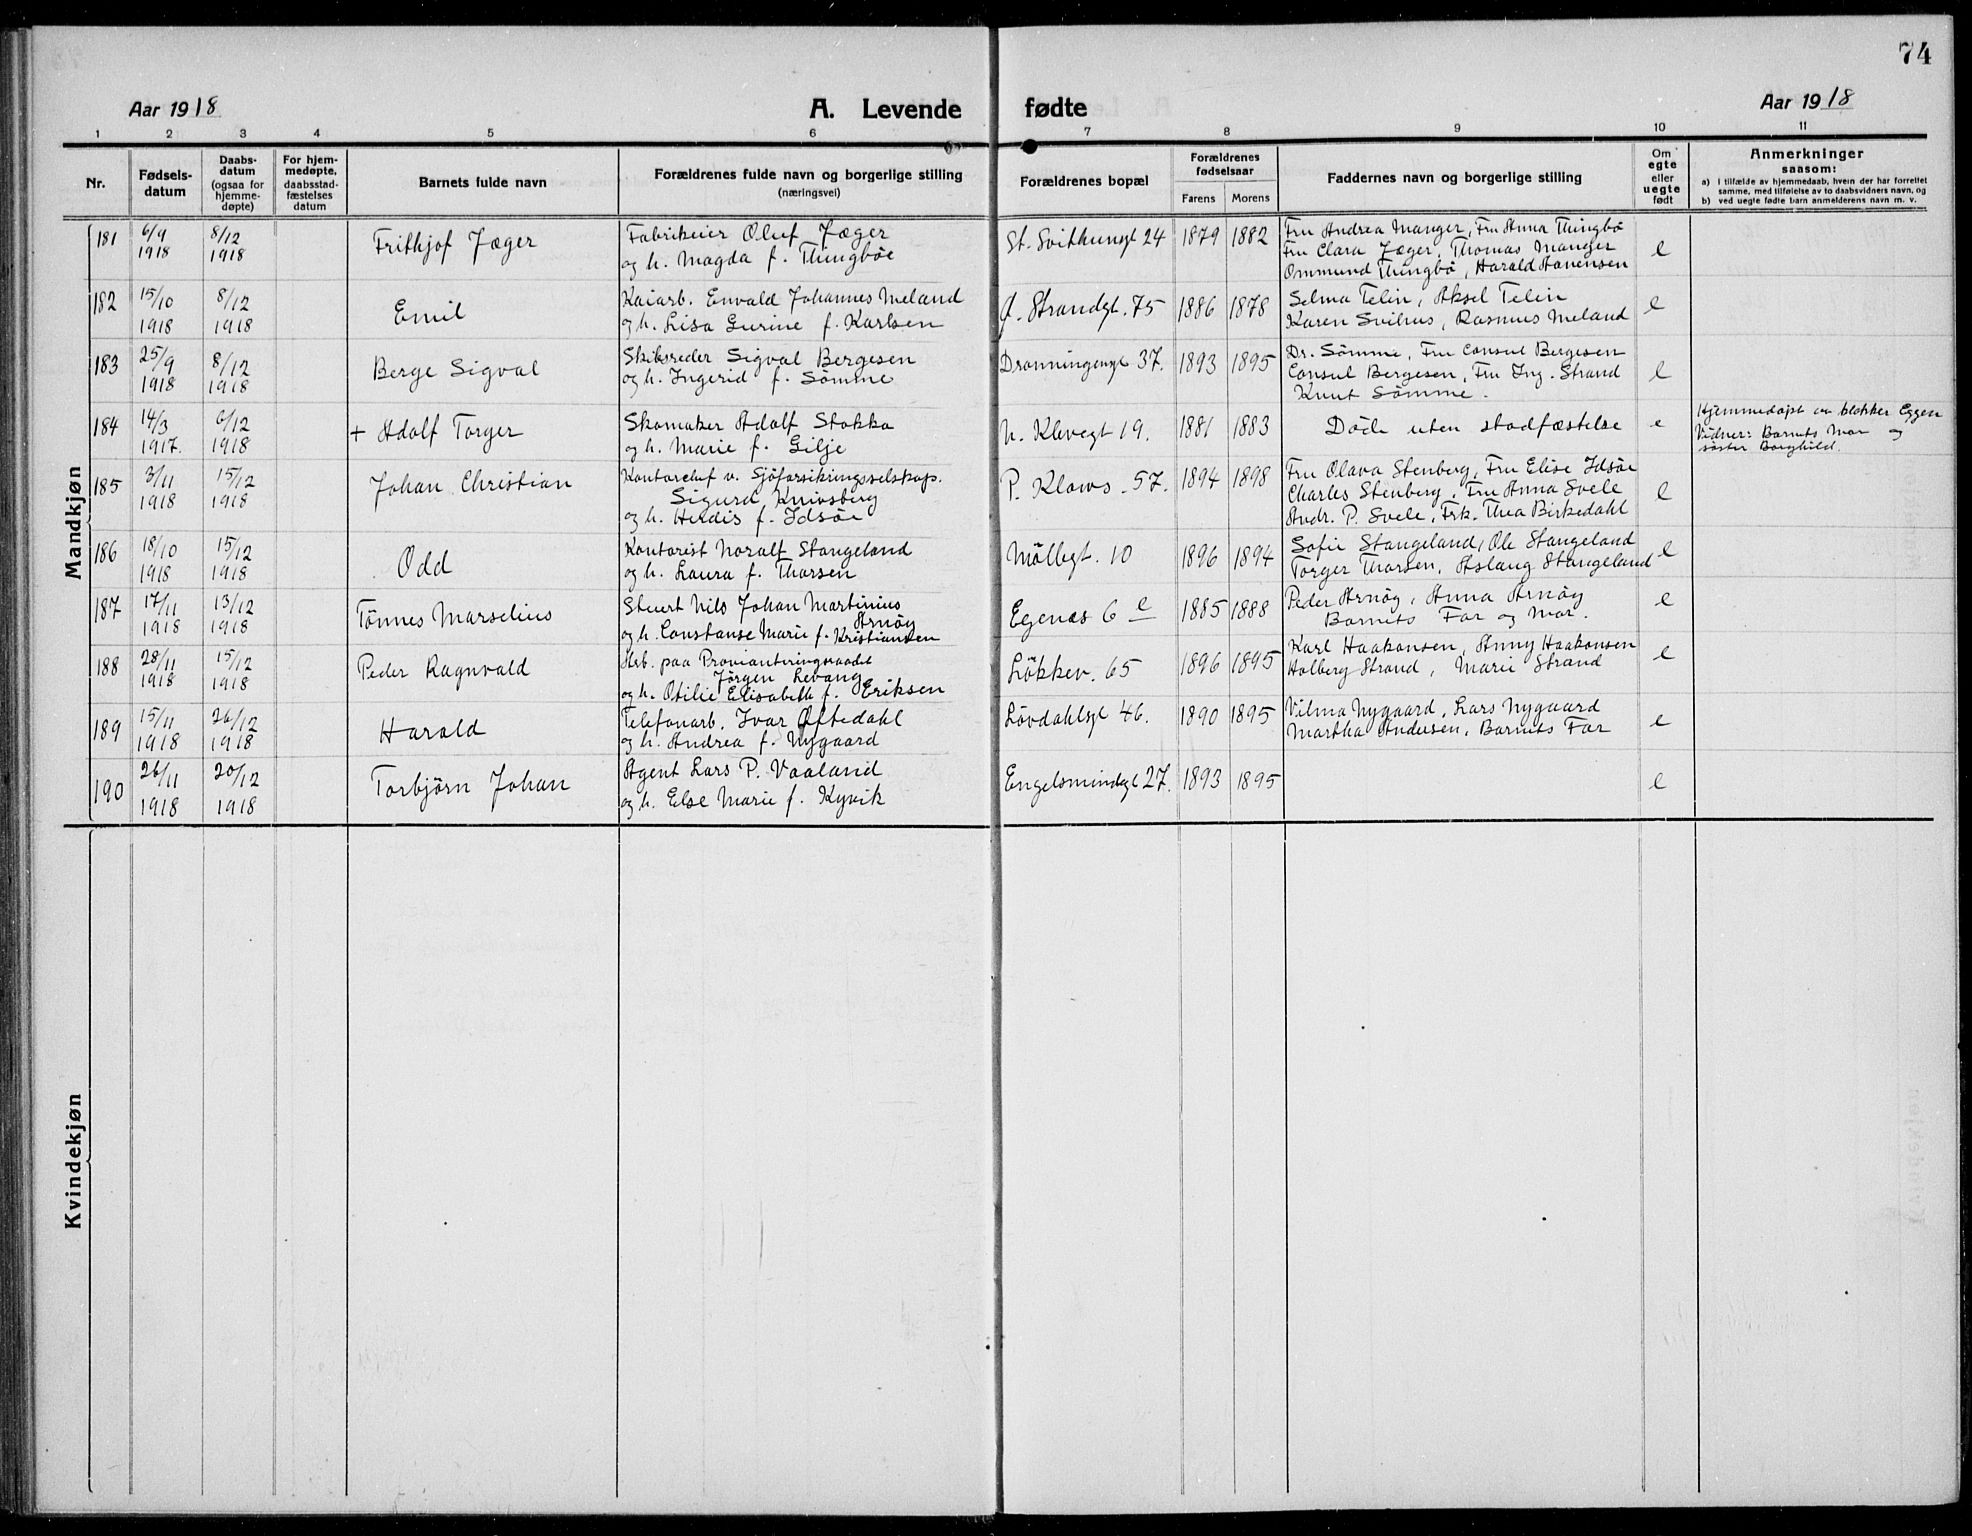 74
Aar 1918
A. Levende fødte
Aar 1918
1 2 3 4 5 6 7 8 9 10 11
Nr.
Fødsels-
datum
Daabs-
datum
(ogsaa for
hjemme-
døpte)
For hjem-
medøpte,
daabsstad-
fæstelses
datum
Barnets fulde navn
Forældrenes fulde navn og borgerlige stilling
(næringsvei)
Forældrenes bopæl
Forældrenes
fødselsaar
Farens Morens
Faddernes navn og borgerlige stilling
Om
egte
eller
uegte
født
Anmerkninger
saasom:
a) I tilfælde av hjemmedaab, hvem der har forrettet
samme, med tilføielse av to daabsvidners navn, og
b) ved uegte fødte barn anmelderens navn m. v.
Mandkjøn
181
6/9
1918
8/12
1918
Frithjof Jæger
Fabrikeier Oluf Jæger
og h. Magda f. Thingböe
St. Svithunsgt 24
1879 1882
Fru Andrea Manger, Fru Anna Thingbö
Fru Clara Jæger, Thomas Manger
Ommund Thingbö, Harald Hanensen
e
182
15/10
1918
8/12
1918
Emil
Kaiarb. Envald Johannes Meland
og h. Lisa Gurine f. Karlsen
Ø. Strandgt. 75
1886 1878
Selma Telin, Aksel Telin
Karen Svihus, Rasmus Meland
e
183
25/9
1918
8/12
1918
Berge Sigval
Skibsreder Sigval Bergesen
og h. Ingerid f. Sömme
Dronningensgt 37.
1893 1895
Dr. Sömme, Fru Consul Bergesen
Consul Bergesen, Fru Ing. Strand
Knut Sömme.
e
184
14/3
1917.
6/12
1918
+ Adolf Torger
Skomaker Adolf Stokka
og h. Marie f. Gilje
N. Klevegt 19.
1881 1883
Döde uten stadfæstelse
e
Hjemmedøpt av klokker Eggen
Vidner: Barnets Mor og
søster Borghild.
185
3/11
1918
15/12
1918
Johan Christian
Kontorchef v. Sjöforsikringsselskap.
Sigurd Knivsberg
og h. Herdis f. Idsöe
P. Klows. 57.
1894 1898
Fru Olava Stenberg, Fru Elise Idsöe
Charles Stenberg, Fru Anna Svele
Andr. P. Svele, Frk. Thea Birkedahl
e
186
18/10
1918
15/12
1918
Odd
Kontorist Noralf Stangeland
og h. Laura f. Thorsen
Möllegt. 10
1896 1894
Sofie Stangeland, Ole Stangeland
Torger Thorsen, Aslaug Stangeland
e
187
17/11
1918
13/12
1918
Tönnes Marselius
Stuert Nils Johan Martinius
Arnöy
og h. Constanse Marie f. Kristiansen
Egenæs 6 e
1885 1888
Peder Arnöy, Anna Arnöy
Barnets Far og Mor.
e
188
28/11
1918
15/12
1918
Peder Ragnvald
Arb. paa Provianteringsraadet
Jörgen Levang
og h. Otilie Elisabeth f. Eriksen
Lökkev. 65
1896 1895
Karl Haakonsen, Anny Haakonsen
Holberg Strand, Marie Strand
e
189
15/11
1918
26/12
1918
Harald
Telefonarb. Ivar Oftedahl
og h. Andrea f. Nygaard
Lövdahlsgt 46.
1890 1895
Vilma Nygaard, Lars Nygaard
Martha Andersen, Barnets Far
e
190
26/11
1918
20/12
1918
Torbjörn Johan
Agent Lars P. Vaaland
og h. Else Marie f. Kyvik
Engelsmindegt 27.
1893 1895
e
Kvindekjøn